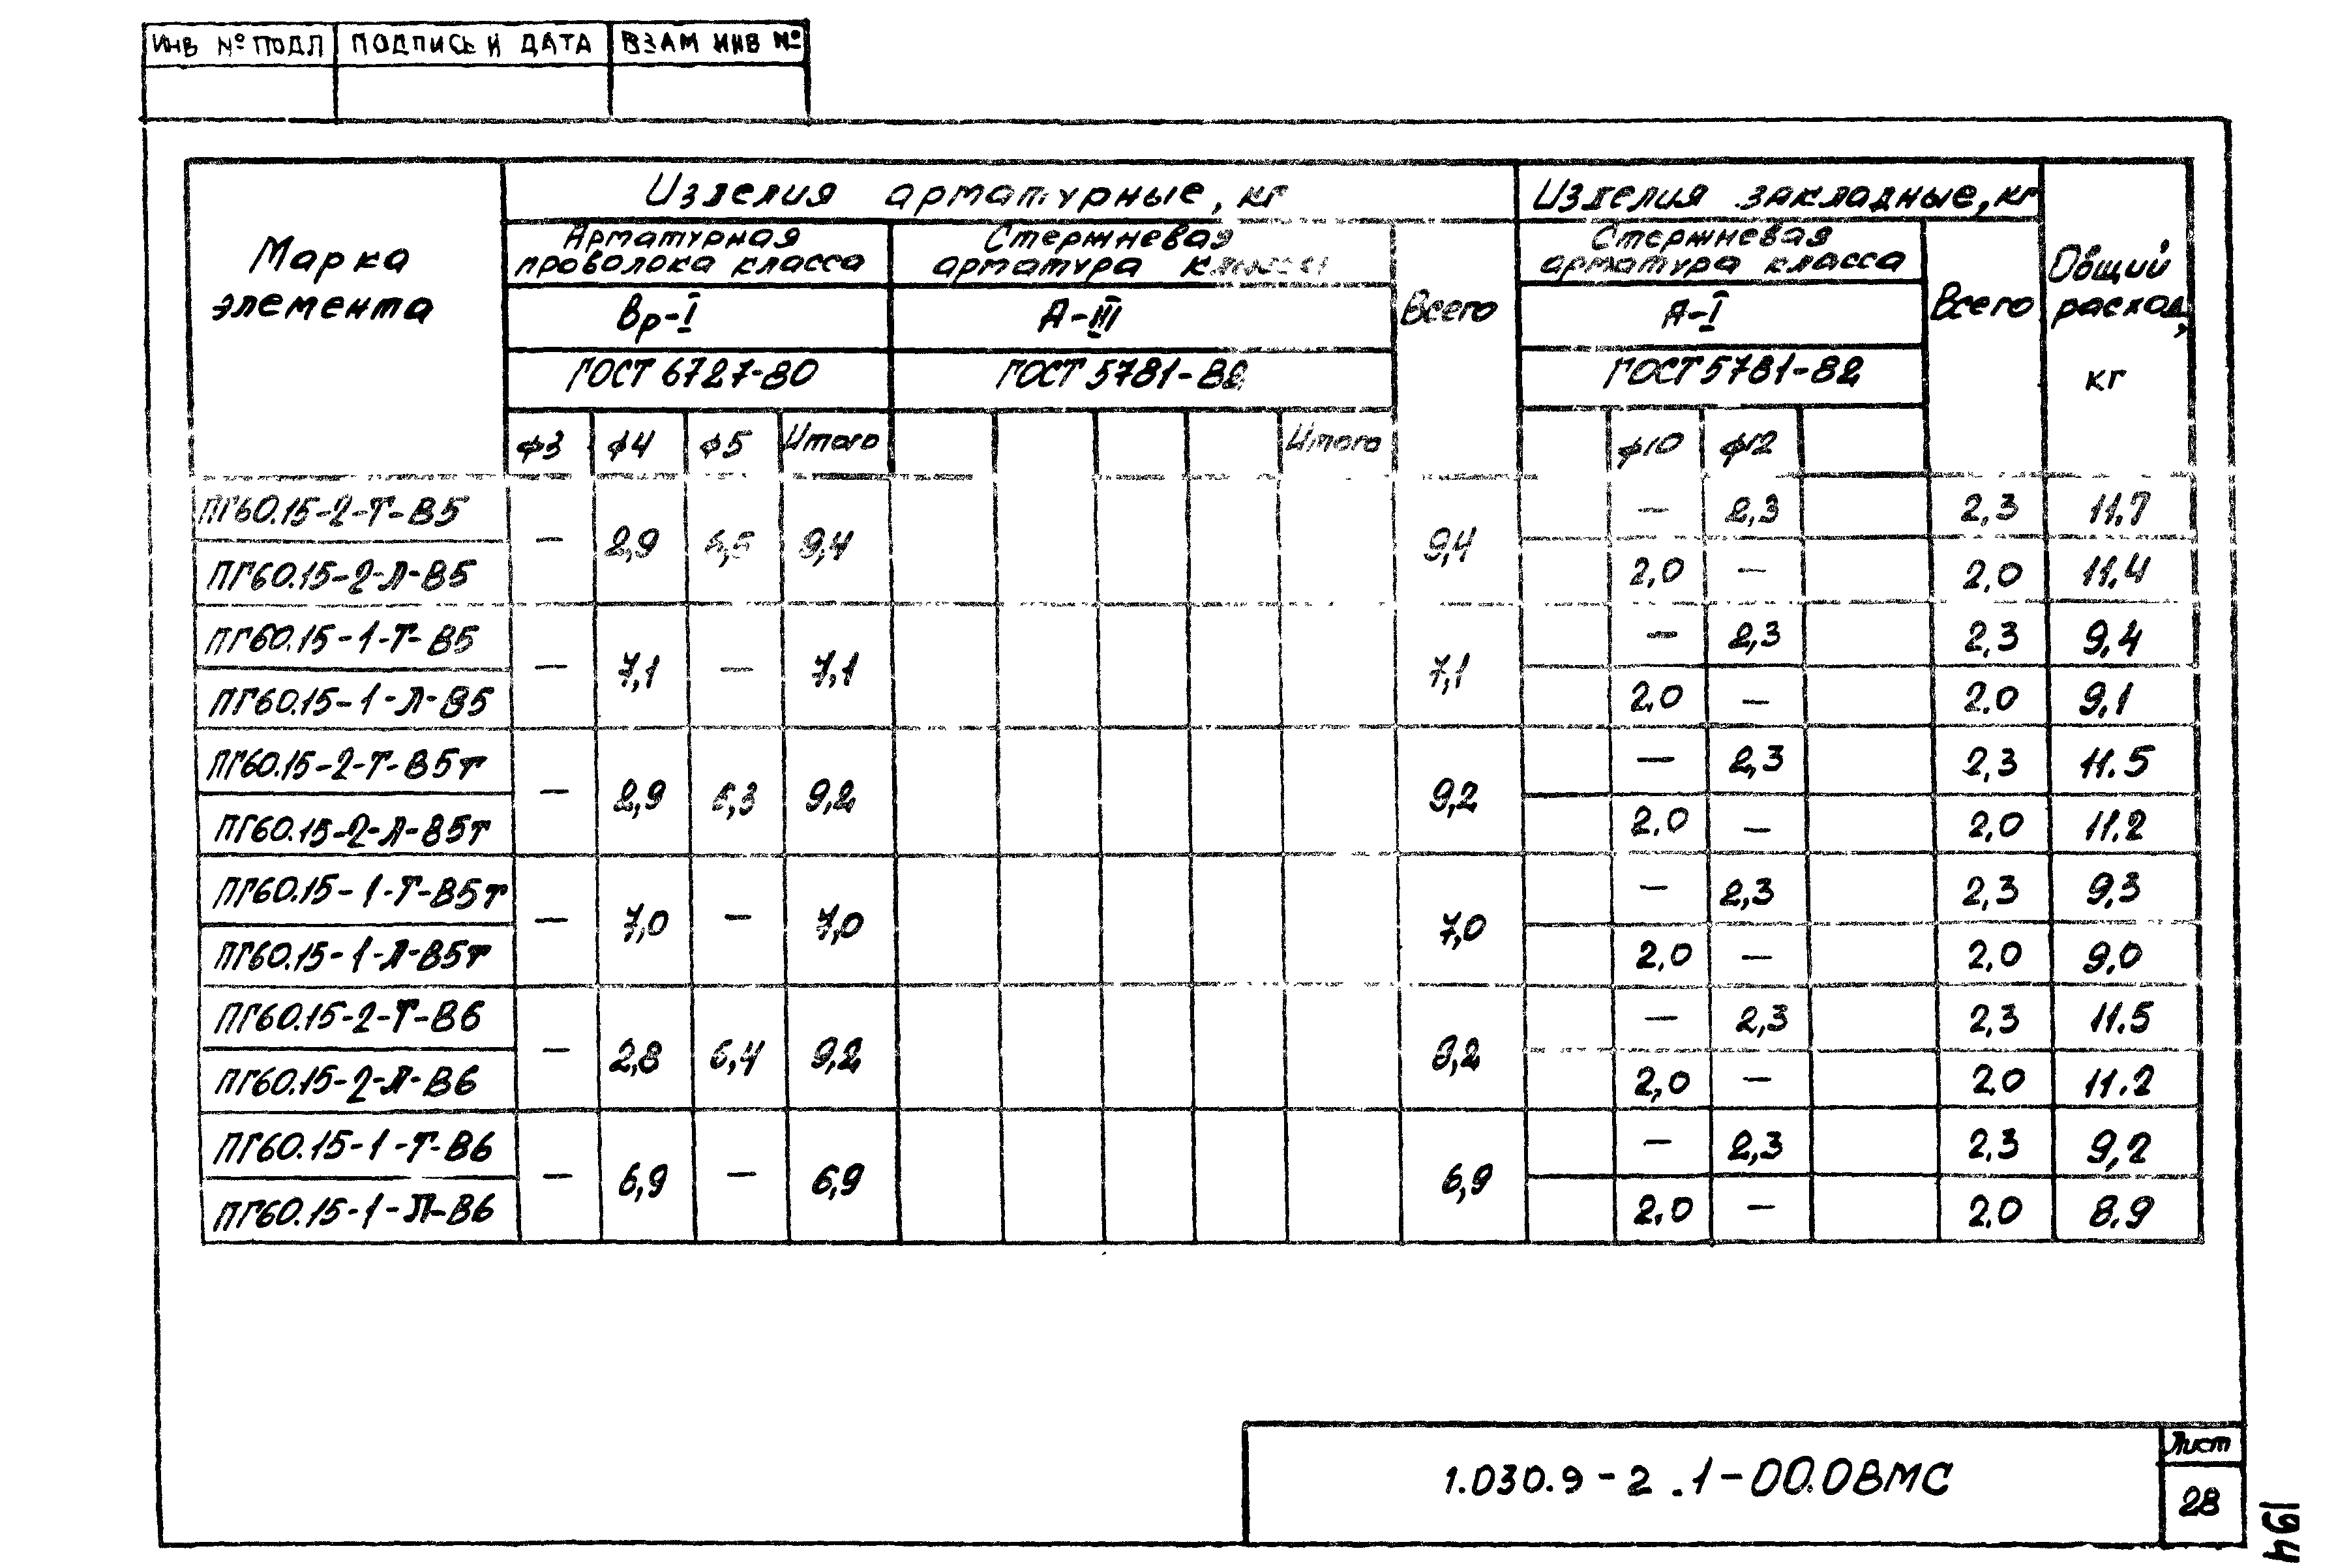 ИНВ № ПОДЛ ПОДПИСЬ И ДАТА ВЗАМ ИНВ №
Марка элемента
Изделия арматурные, кг
Изделия закладные, кг
Общий расход, кг
Арматурная проволока класса
Стержневая арматура класса
Всего
Стержневая арматура класса
Всего
Вр-I
А-III
А-I
ГОСТ 6727-80
ГОСТ 5781-82
ГОСТ 5781-82
ф3 ф4 ф5 Итого Итого ф10 ф12
ПГ60.15-2-Т-В5 — 2,9 6,5 9,4 9,4 — 2,3 2,3 11.7
ПГ60.15-2-Л-В5 2,0 — 2,0 11.4
ПГ60.15-1-Т-В5 — 7,1 — 7,1 7,1 — 2,3 2,3 9,4
ПГ60.15-1-Л-В5 2,0 — 2.0 9,1
ПГ60.15-2-Т-В5т — 2,9 6,3 9,2 9,2 — 2,3 2,3 11.5
ПГ60.15-2-Л-В5т 2.0 — 2,0 11.2
ПГ60.15-1-Т-В5т — 7,0 — 7,0 7,0 — 2,3 2,3 9,3
ПГ60.15-1-Л-В5т 2,0 — 2,0 9,0
ПГ60.15-2-Т-В6 — 2,8 6,4 9,2 9,2 — 2,3 2,3 11.5
ПГ60.15-2-Л-В6 2,0 — 2,0 11.2
ПГ60.15-1-Т-В6 — 6,9 — 6,9 6,9 — 2,3 2,3 9,2
ПГ60.15-1-Л-В6 2.0 — 2.0 8.9
1.030.9-2.1-00.0ВМС
Лист
28
194